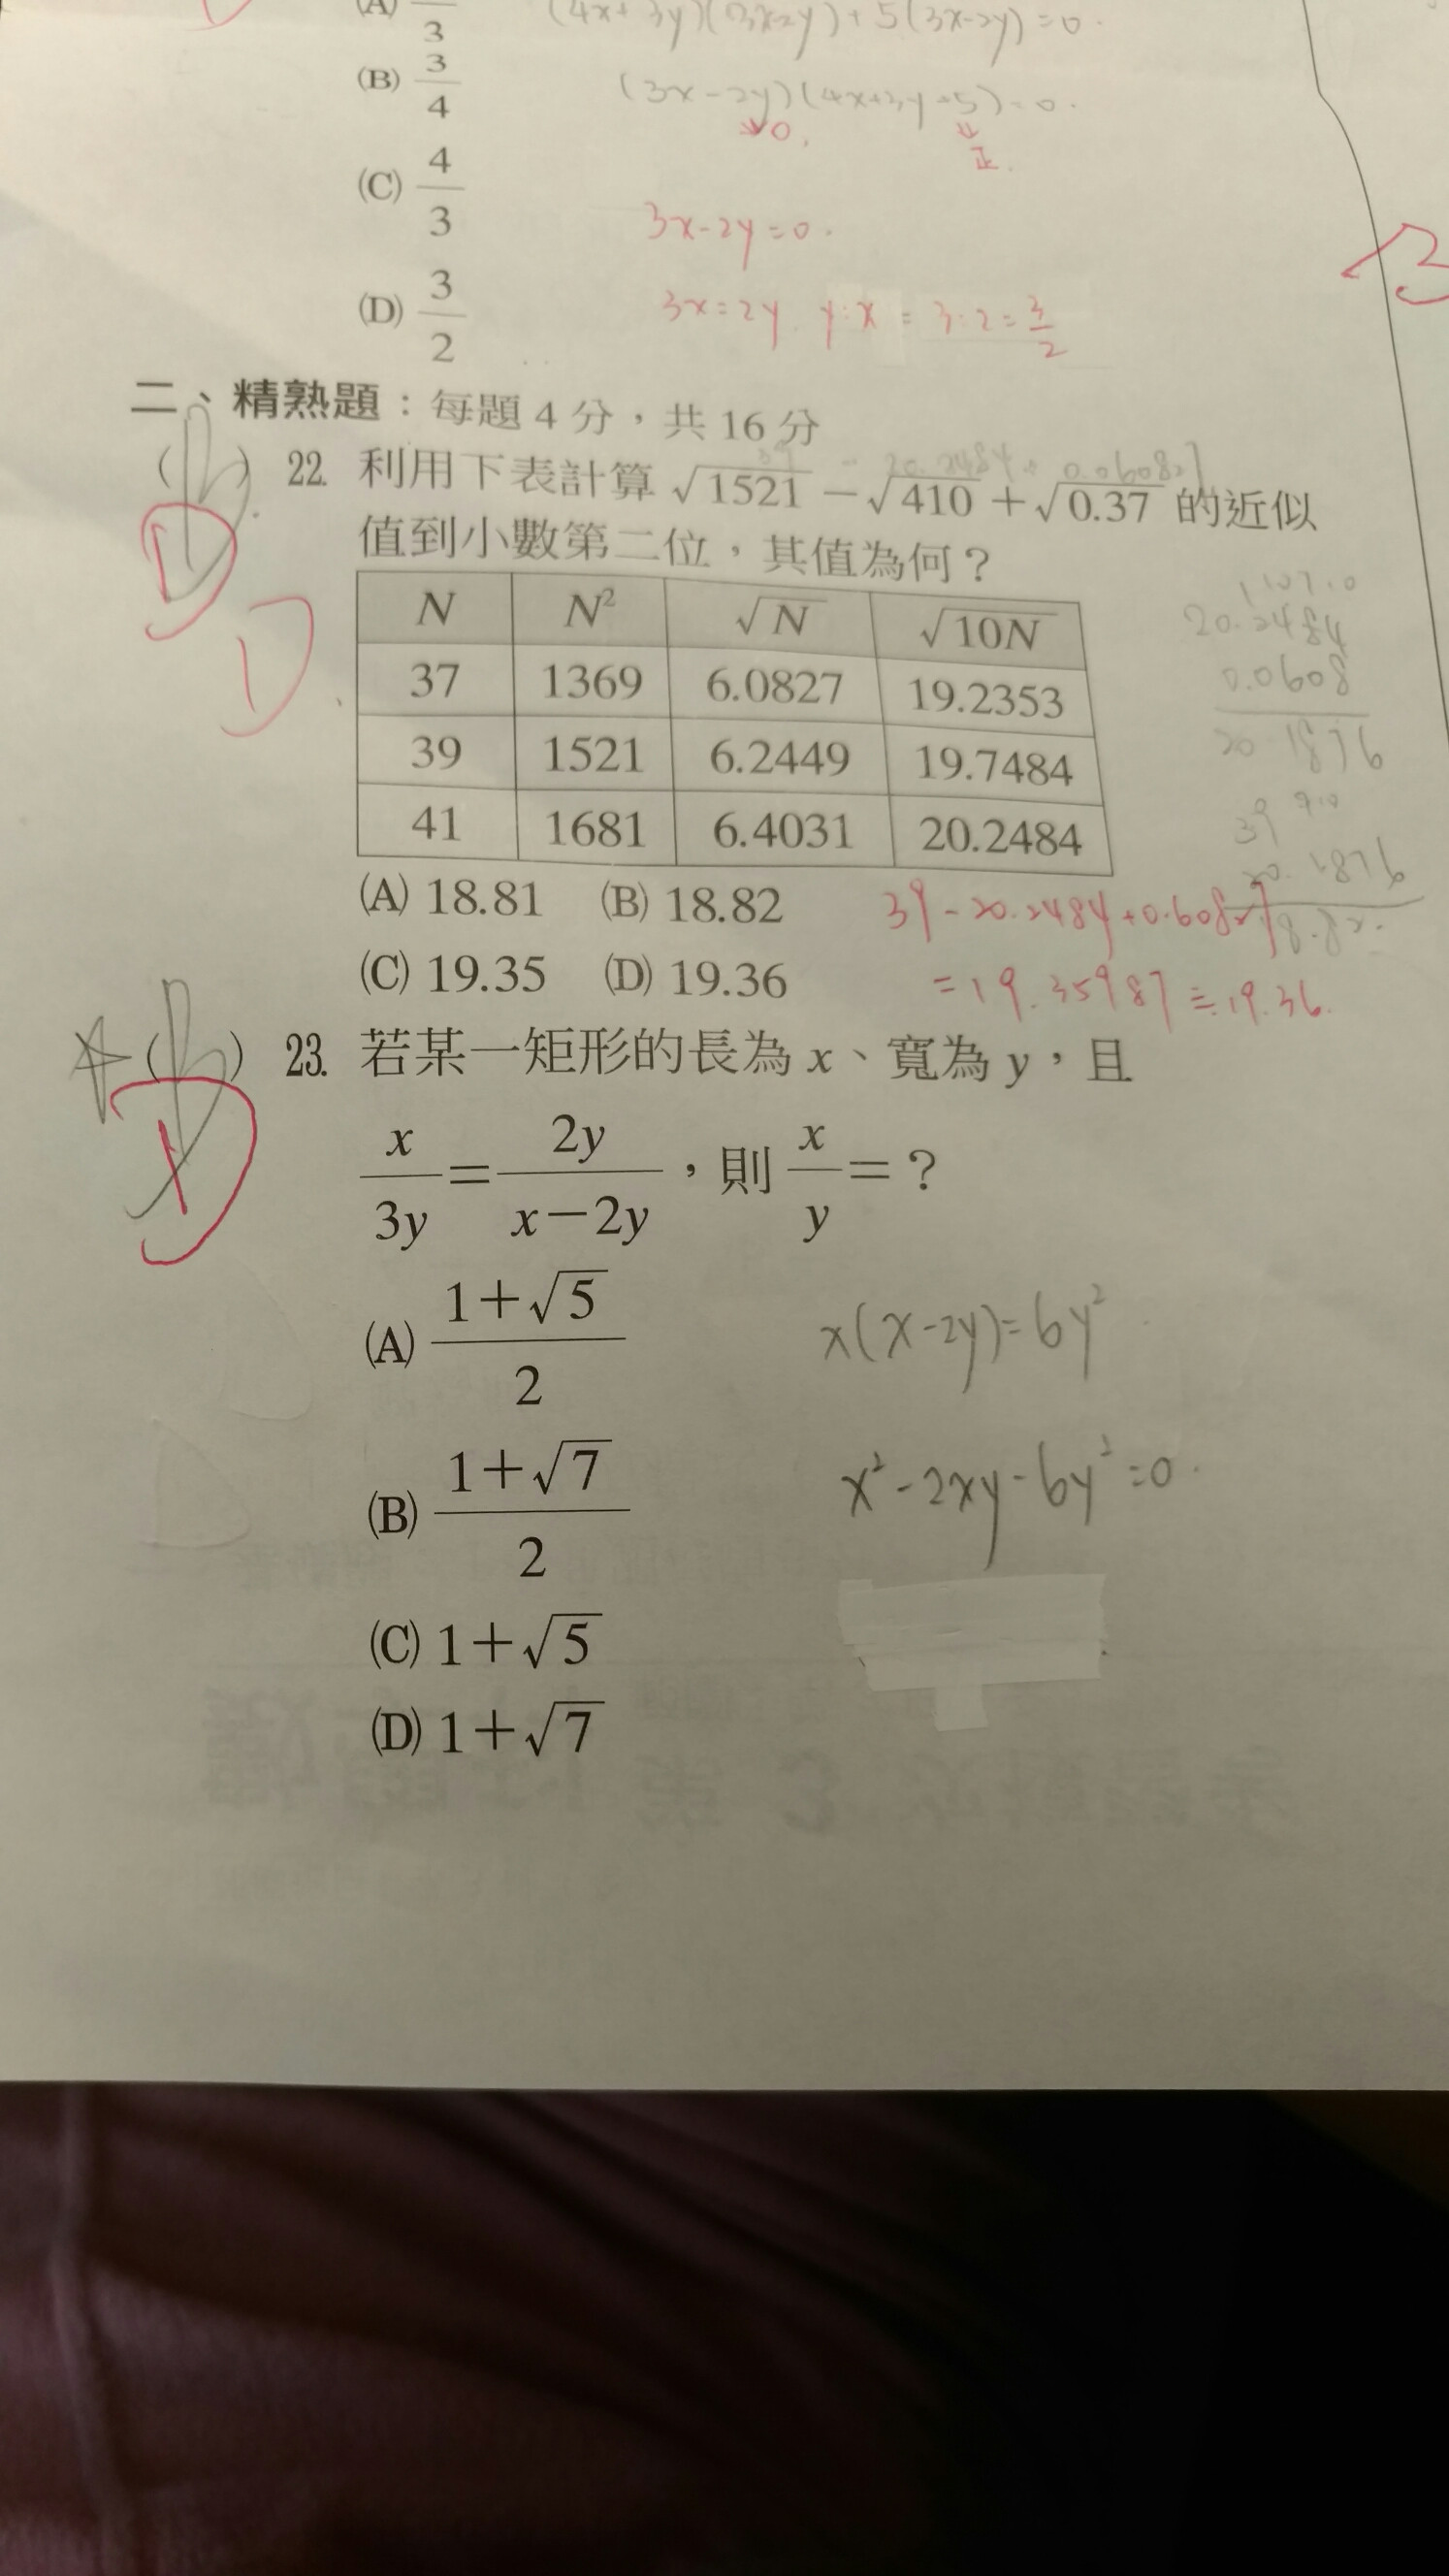 (A) 3
(4x+3y)(3x-2y)+5(3x-2y)=0.
(B) 3/4
(3x-2y)(4x+3y+5)=0.
0.
正.
(C) 4/3
3x-2y=0.
(D) 3/2
3x=2y. y:x = 3:2 = 3/2
二、精熟題：每題 4 分，共 16 分
39 - 20.2484 + 0.060827
( ) 22. 利用下表計算 √1521 − √410 + √0.37 的近似
D
值到小數第二位，其值為何？
D
N N² √N √10N
37 1369 6.0827 19.2353
39 1521 6.2449 19.7484
41 1681 6.4031 20.2484
20.2484
0.0608
20.1876
39
20.1876
18.82.
(A) 18.81 (B) 18.82
39-20.2484+0.60827
(C) 19.35 (D) 19.36
=19.35987≒19.36.
( ) 23. 若某一矩形的長為 x、寬為 y，且
D
x/3y = 2y/x−2y，則 x/y =？
(A) 1+√5/2
x(x-2y)=6y²
(B) 1+√7/2
x²-2xy-6y²=0.
(C) 1+√5
(D) 1+√7